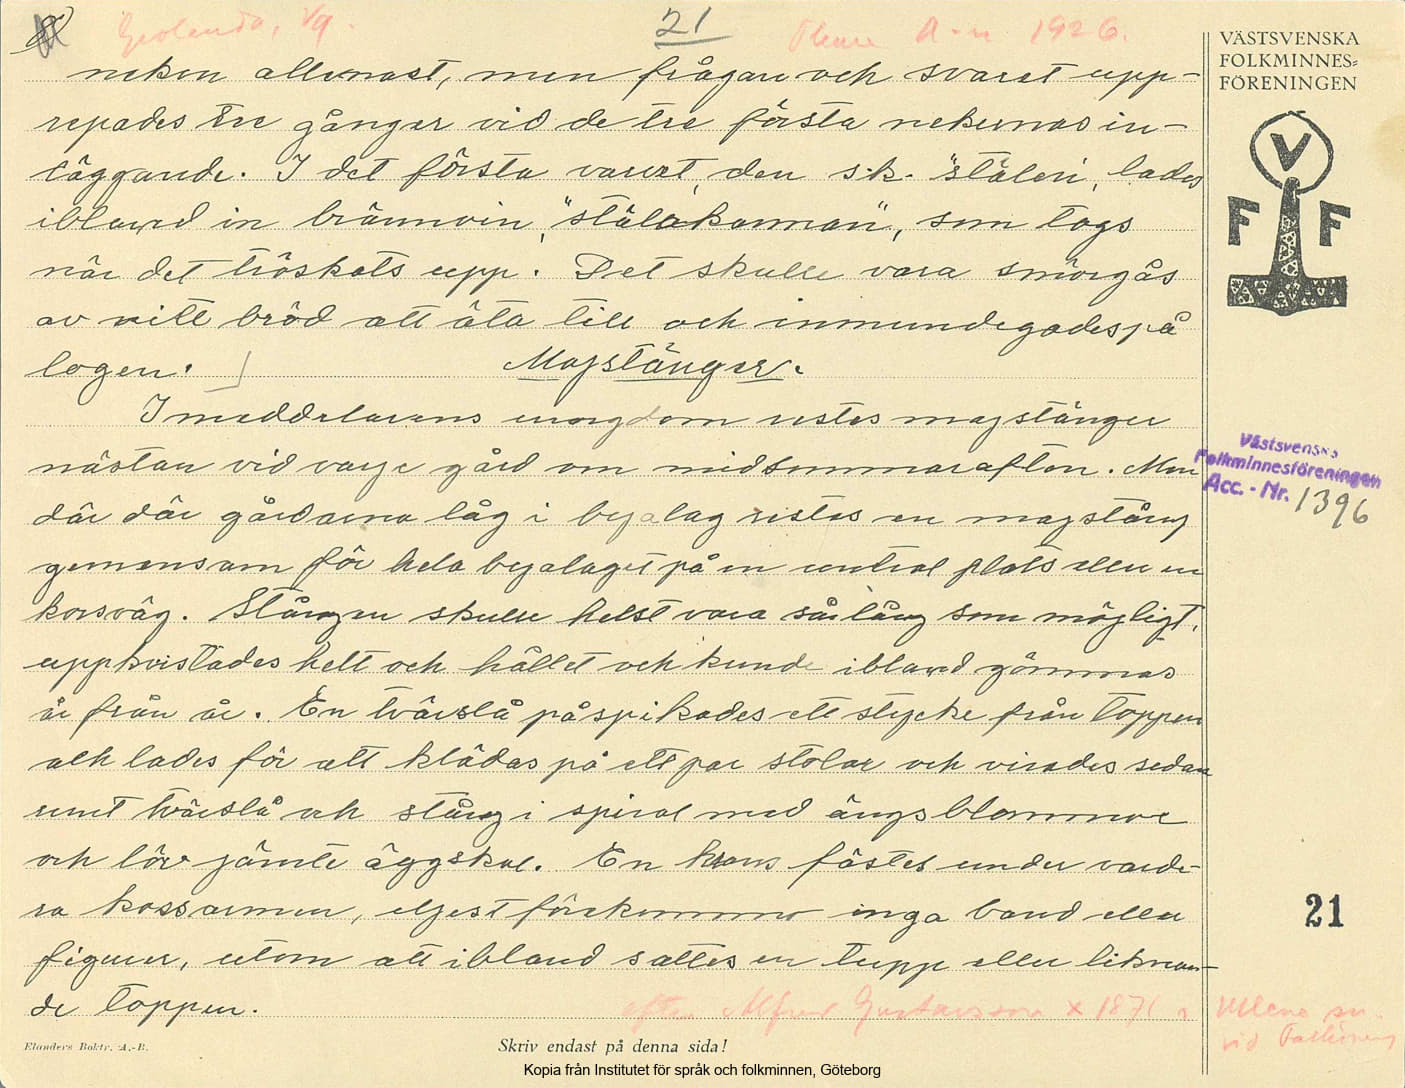 Grolanda, Vg.
21
A-n 1926.
VÄSTSVENSKA
FOLKMINNES=
FÖRENINGEN
V
F F
neken allenast, men frågan och svaret upp-
repades tre gånger vid de tre första nekernas in-
läggande. I det första varvt, den s.k. "stålen", lades
ibland in brännvin, "stålakannan", som togs
när det tröskats upp. Det skulle vara smörgås
av vitt bröd att äta till och inmundegades på
logen.
Majstänger.
I meddelarens ungdom restes majstänger
nästan vid varje gård om midsommarafton. Men
där där gårdarna låg i byalag restes en majstång
gemensam för hela byalaget på en central plats eller en
korsväg. Stången skulle helst vara så lång som möjligt,
uppkvistades helt och hållet och kunde ibland gömmas
år från år. En tvärslå påspikades ett stycke från toppen
och lades för att klädas på ett par stolar och virades sedan
runt tvärslå och stång i spiral med ängsblommor
och löv jämte äggskal. En krans fästes under varde-
ra korsarmen, eljest förekommo inga band eller
figurer, utom att ibland sattes en tupp eller liknan-
de toppen.
efter Alfred Gustavsson x 1871 i
vid Falköping
Västsvenska
Folkminnesföreningen
Acc. - Nr. 1396
21
Elanders Boktr. A.-B.
Skriv endast på denna sida!
Kopia från Institutet för språk och folkminnen, Göteborg